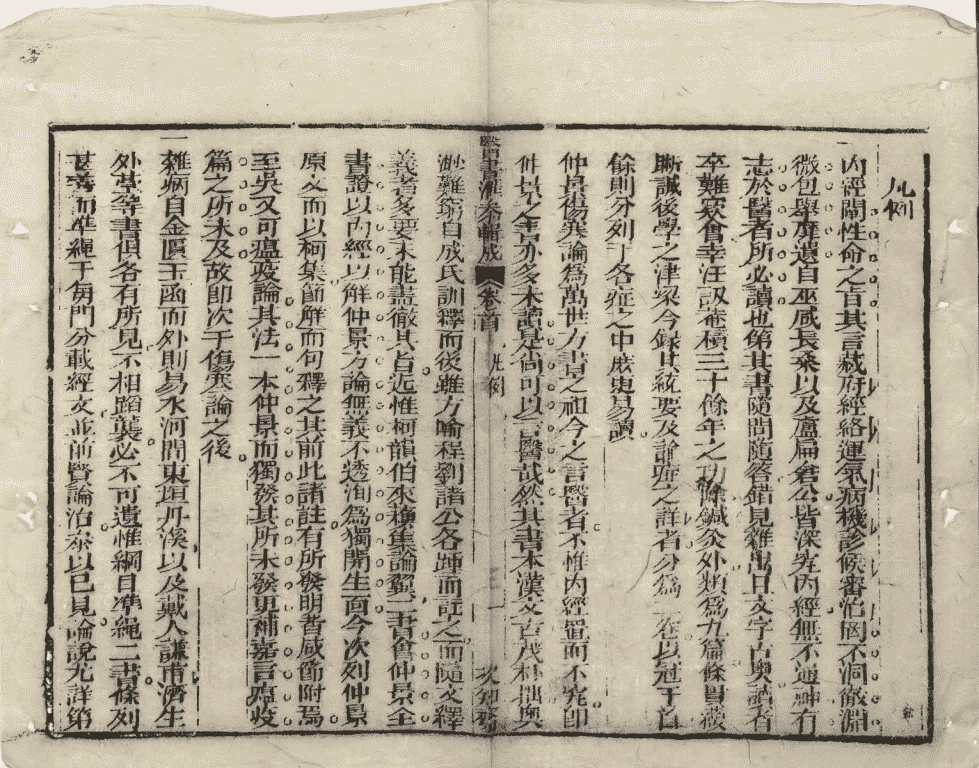 凡例
內經闡性命之旨其言藏府經絡運氣病機診候審治罔不洞徹淵
微包舉靡遺自巫咸長桑以及盧扁倉公皆深究內經無不通神有
志於醫者所必讀也第其書隨問隨答錯見雜出且文字古奧讀者
卒難竅會幸汪訒菴積三十餘年之功除鍼灸外類為九篇條貫嚴
晰誠後學之津梁今錄其統要及論症之詳者分為一卷以冠于首
餘則分列于各症之中庶更易讀
仲景傷寒論為萬世方書之祖今之言醫者不惟內經置而不究即
仲景全書亦多未讀是尚可以言醫哉然其書本漢文古茂樸拙奧
醫書滙參輯成
卷首
凡例
一
妙難窮自成氏訓釋而後雖方喻程劉諸公各踵而註之而隨文釋
義者多要未能盡徹其旨近惟柯韻伯來穪集論翼二書會仲景全
書證以內經以解仲景方論無義不透洵為獨開生面今次列仲景
原文而以柯集節解而句釋之其前此諸註有所發明者咸節附焉
至吳又可瘟疫論其法一本仲景而獨發其所未發更補嘉言瘟疫
篇之所未及故即次于傷寒論之後
一雜病自金匱玉函而外則易水河間東垣丹溪以及戴人謙甫濟生
外臺等書俱各有所見不相蹈襲必不可遺惟綱目準繩二書條列
甚善而準繩于每門分載經文並前賢論治參以已見論說尤詳第